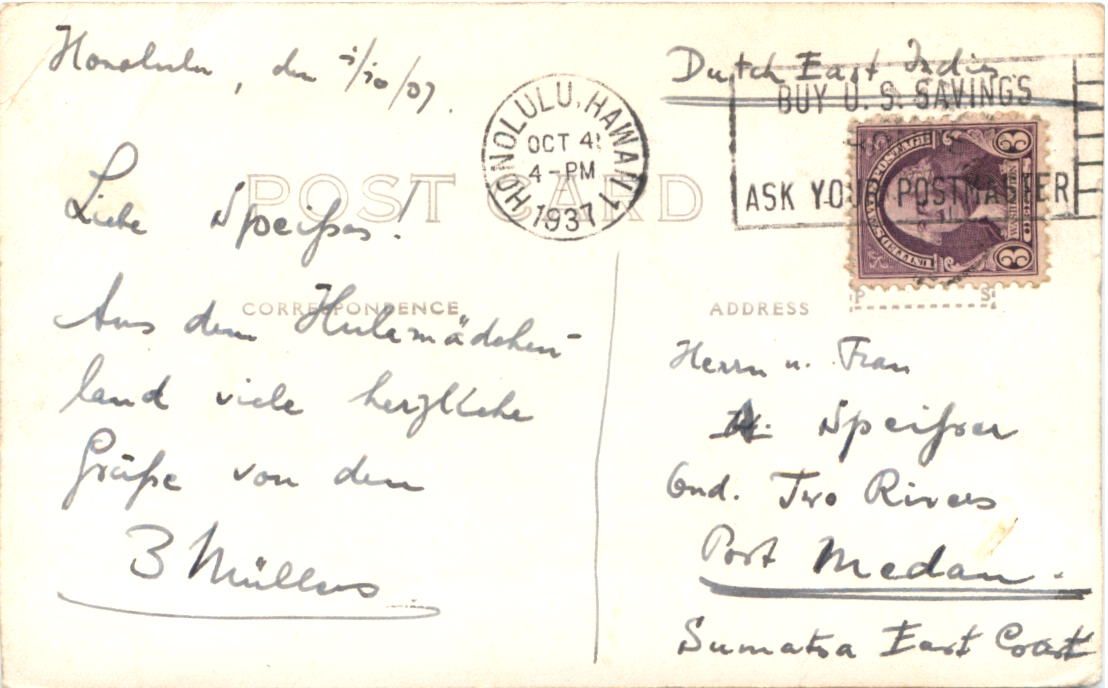 Honolulu, den 3/10/37.
Liebe Speissers!
Aus dem Hulamädchen-
land viele herzliche
Grüße von den
3 Müllers
POST CARD
CORRESPONDENCE
ADDRESS
HONOLULU, HAWAII
OCT 4
4-PM
1937
BUY U.S. SAVINGS
ASK YOUR POSTMASTER
UNITED STATES POSTAGE
WASHINGTON
3 3
P S
Dutch East Indies
Herrn u. Frau
Speisser
Ond. Two Rivers
Port Medan.
Sumatra East Coast